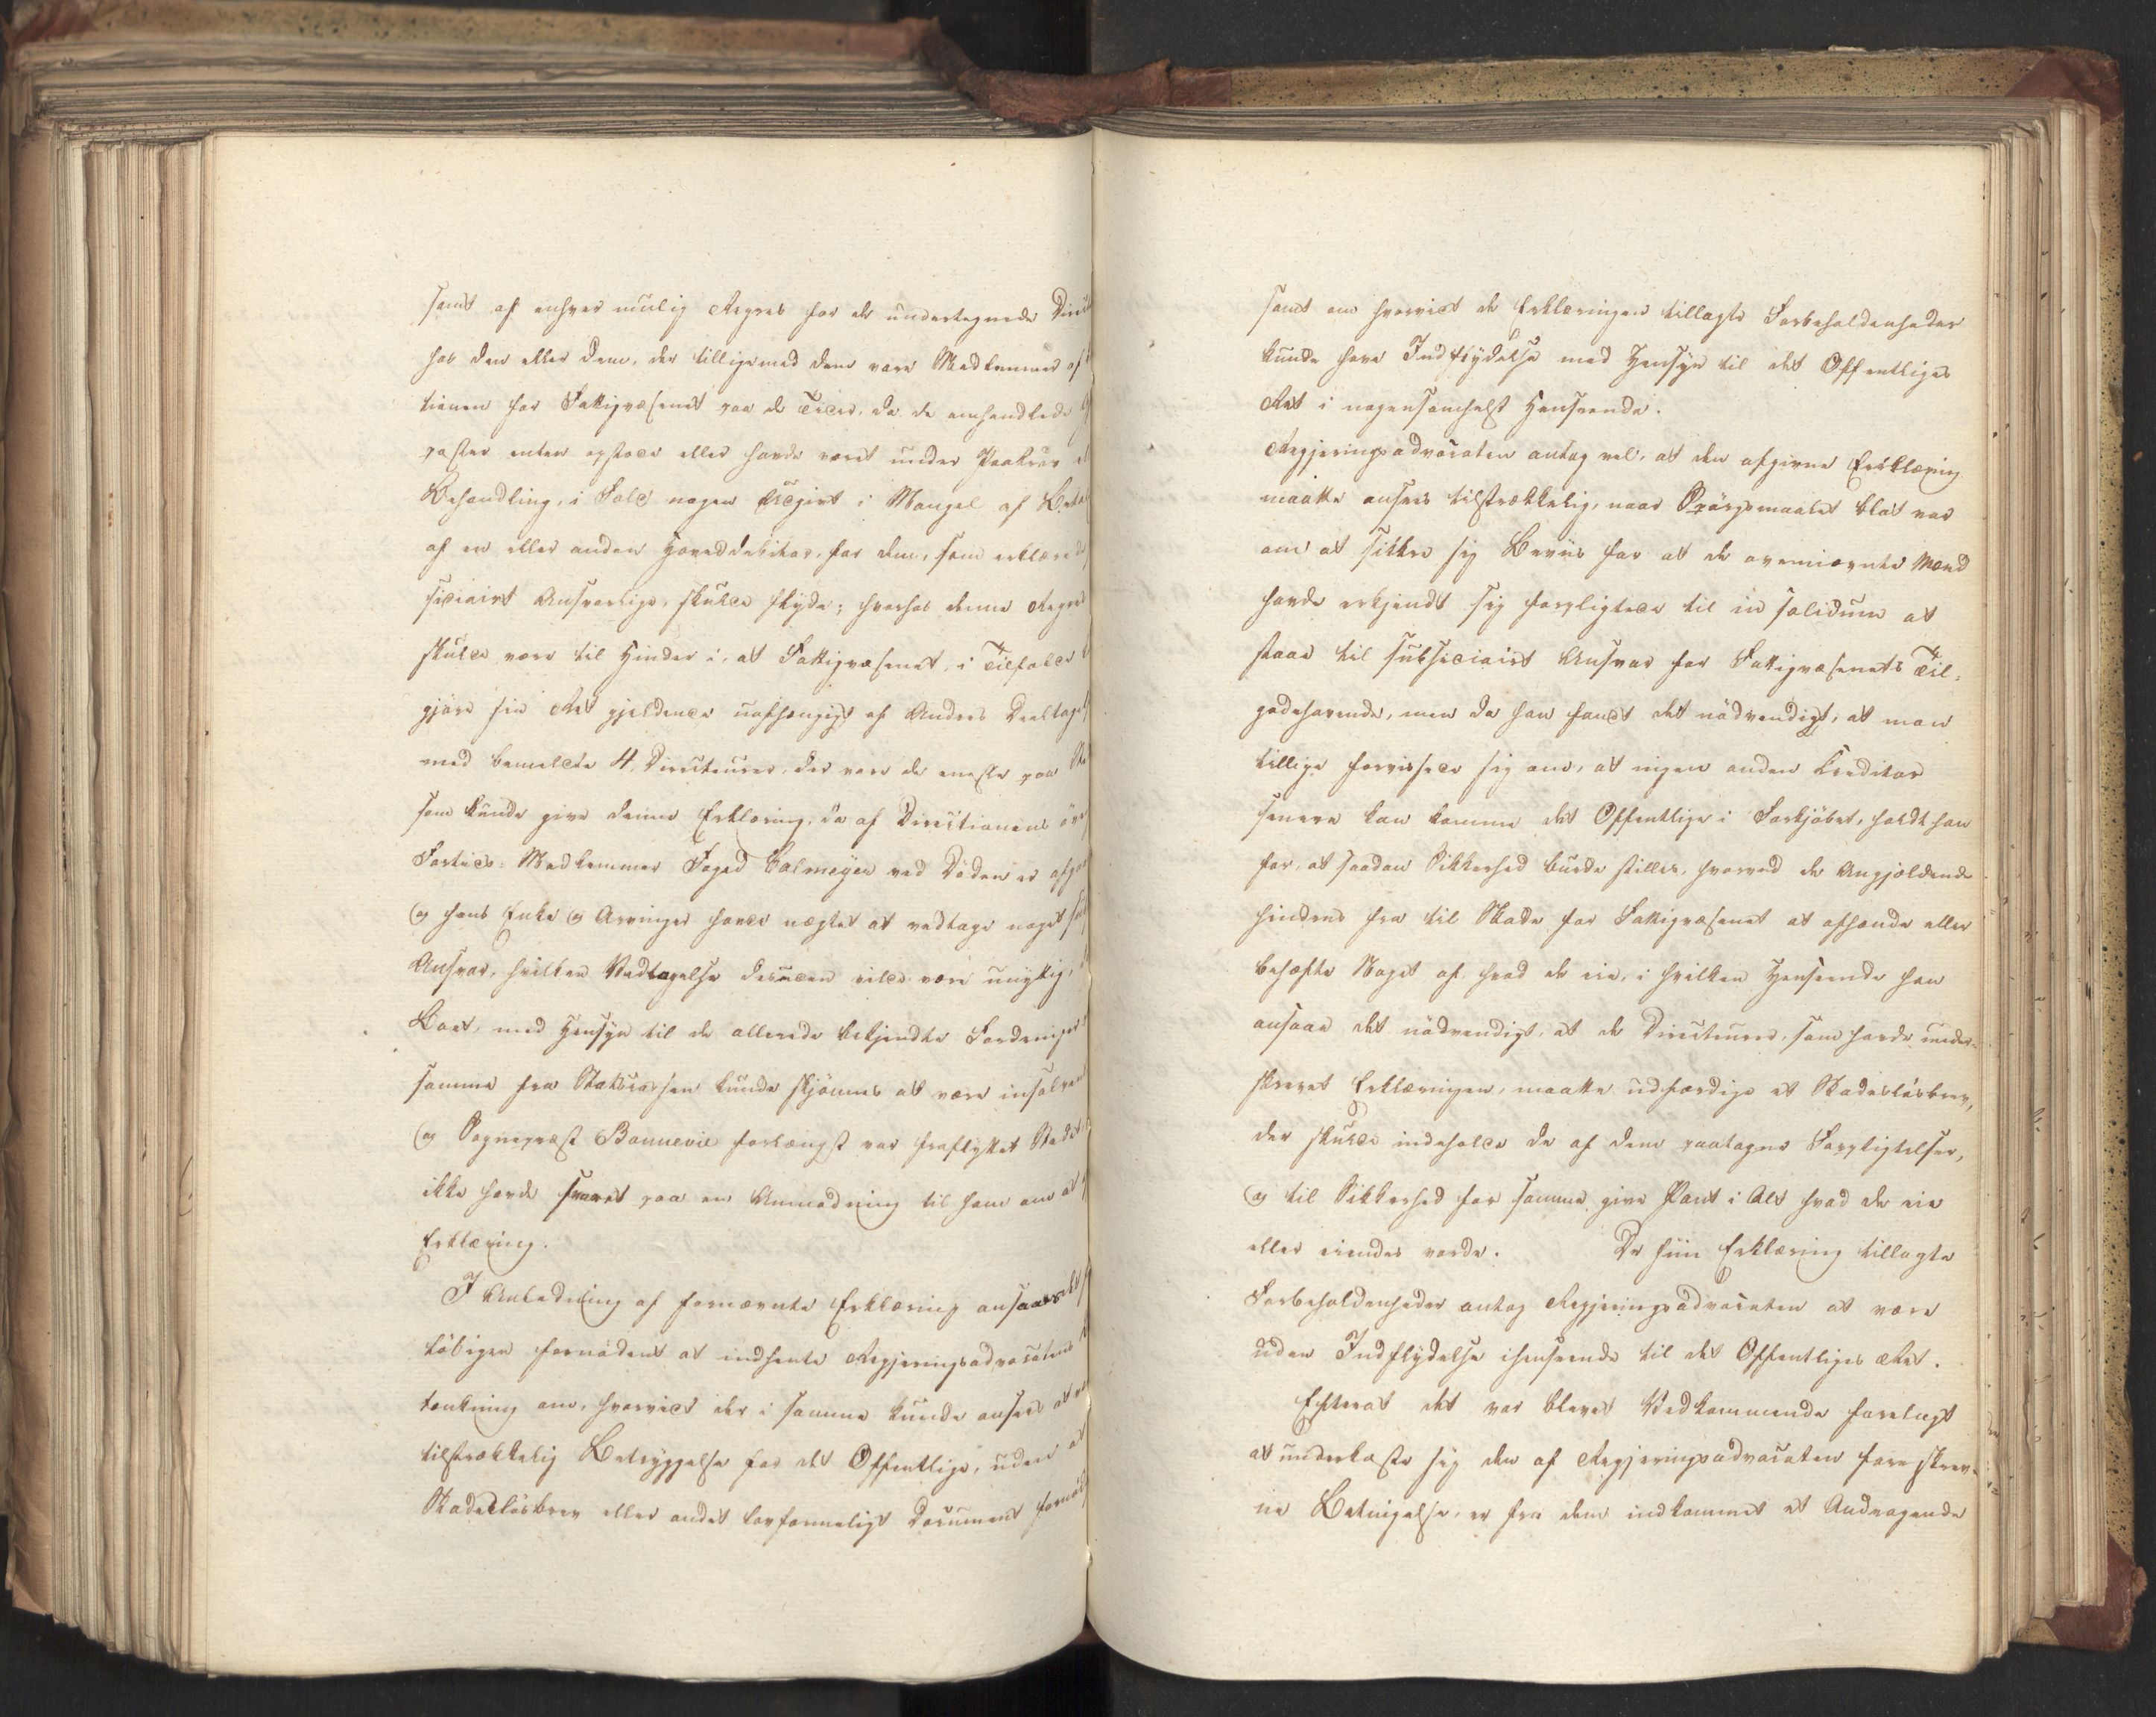 samt af enhver mulig Regres for de undertegnede Direct
hos den eller dem, der tilligemed dem vare Medlemmer af
tionen for Fattigvæsenet paa de Tider, da de omhandlede
poster enten opstode eller havde været under Paakrav
Behandling, i Fald nogen Udgivt i Mangel af Betal
af en eller anden Hoveddebitor, for dem, som erklærede
sidiairt Ansvarlige, skulde flyde; hvorhos denne Regres
skulde være til Hinder i, at Fattigvæsenet, i Tilfælde
gjøre sin Ret gjeldende uafhængigt af Andres Deeltagelse
med bemeldte 4 Directeurer, der vare de eneste paa Ste
som kunde give denne Erklæring, da af Directionens øvr
Forties-Medlemmer Foged Calmeyer ved Døden er afgaae
og hans Enke og Arvinger havde nægtet at vedtage noget sub
Ansvar, hvilken Vedtagelse desuden vilde være unyttig,
Boet, med Hensyn til de allerede bekjendte Fordringer
samme fra Statscassen kunde skjønnes at være insolvent
og Sognepræst Bonnevie forlængst var fraflyttet Stedet
ikke havde svaret paa en Anmodning til ham om at
Erklæring.
I Anledning af fornævnte Erklæring ansaaes det
løvigen fornødent at indhente Regjeringsadvocatens
tænkning om, hvorvidt der i samme kunde ansees at
tilstrækkelig Betryggelse for det Offentlige, uden at
Skadesløsbrev eller andet lovformeligt Document
samt om hvorvidt de Erklæringen tillagte Forbeholdenheder
kunde have Indflydelse med Hensyn til det Offentliges
Ret i nogensomhelst Henseende.
Regjeringsadvocaten antog vel, at den afgivne Erklæring
maatte ansees tilstrækkelig, naar Spørgsmaalet blot var
om at sikkre sig Beviis for at de ovennævnte Mænd
havde erkjendt sig forpligtede til in solidum at
staae til subsidiairt Ansvar for Fattigvæsenets Til-
godehavende, men da han fandt det nødvendigt, at man
tillige forvissede sig om, at ingen anden Kreditor
senere kan komme det Offentlige i Forkjøbet, holdt han
for, at saadan Sikkerhed burde stilles, hvorved de Angjældende
hindres fra til Skade for Fattigvæsenet at afhænde eller
behæfte Noget af hvad de eie, i hvilken Henseende han
ansaae det nødvendigt, at de Directeurer, som havde under-
skrevet Erklæringen, maatte udfærdige et Skadesløsbrev,
der skulde indeholde de af dem paatagne Forpligtelser,
og til Sikkerhed for samme give Pant i Alt hvad de eie
eller eiendes vorde. De hiin Erklæring tillagte
Forbeholdenheder antog Regjeringsadvocaten at være
uden Indflydelse ihenseende til det Offentliges Ret.
Efterat det var blevet Vedkommende forelagt
at underkaste sig den af Regjeringsadvocaten foreskrev-
ne Betingelse, er fra dem indkommet et Andragende